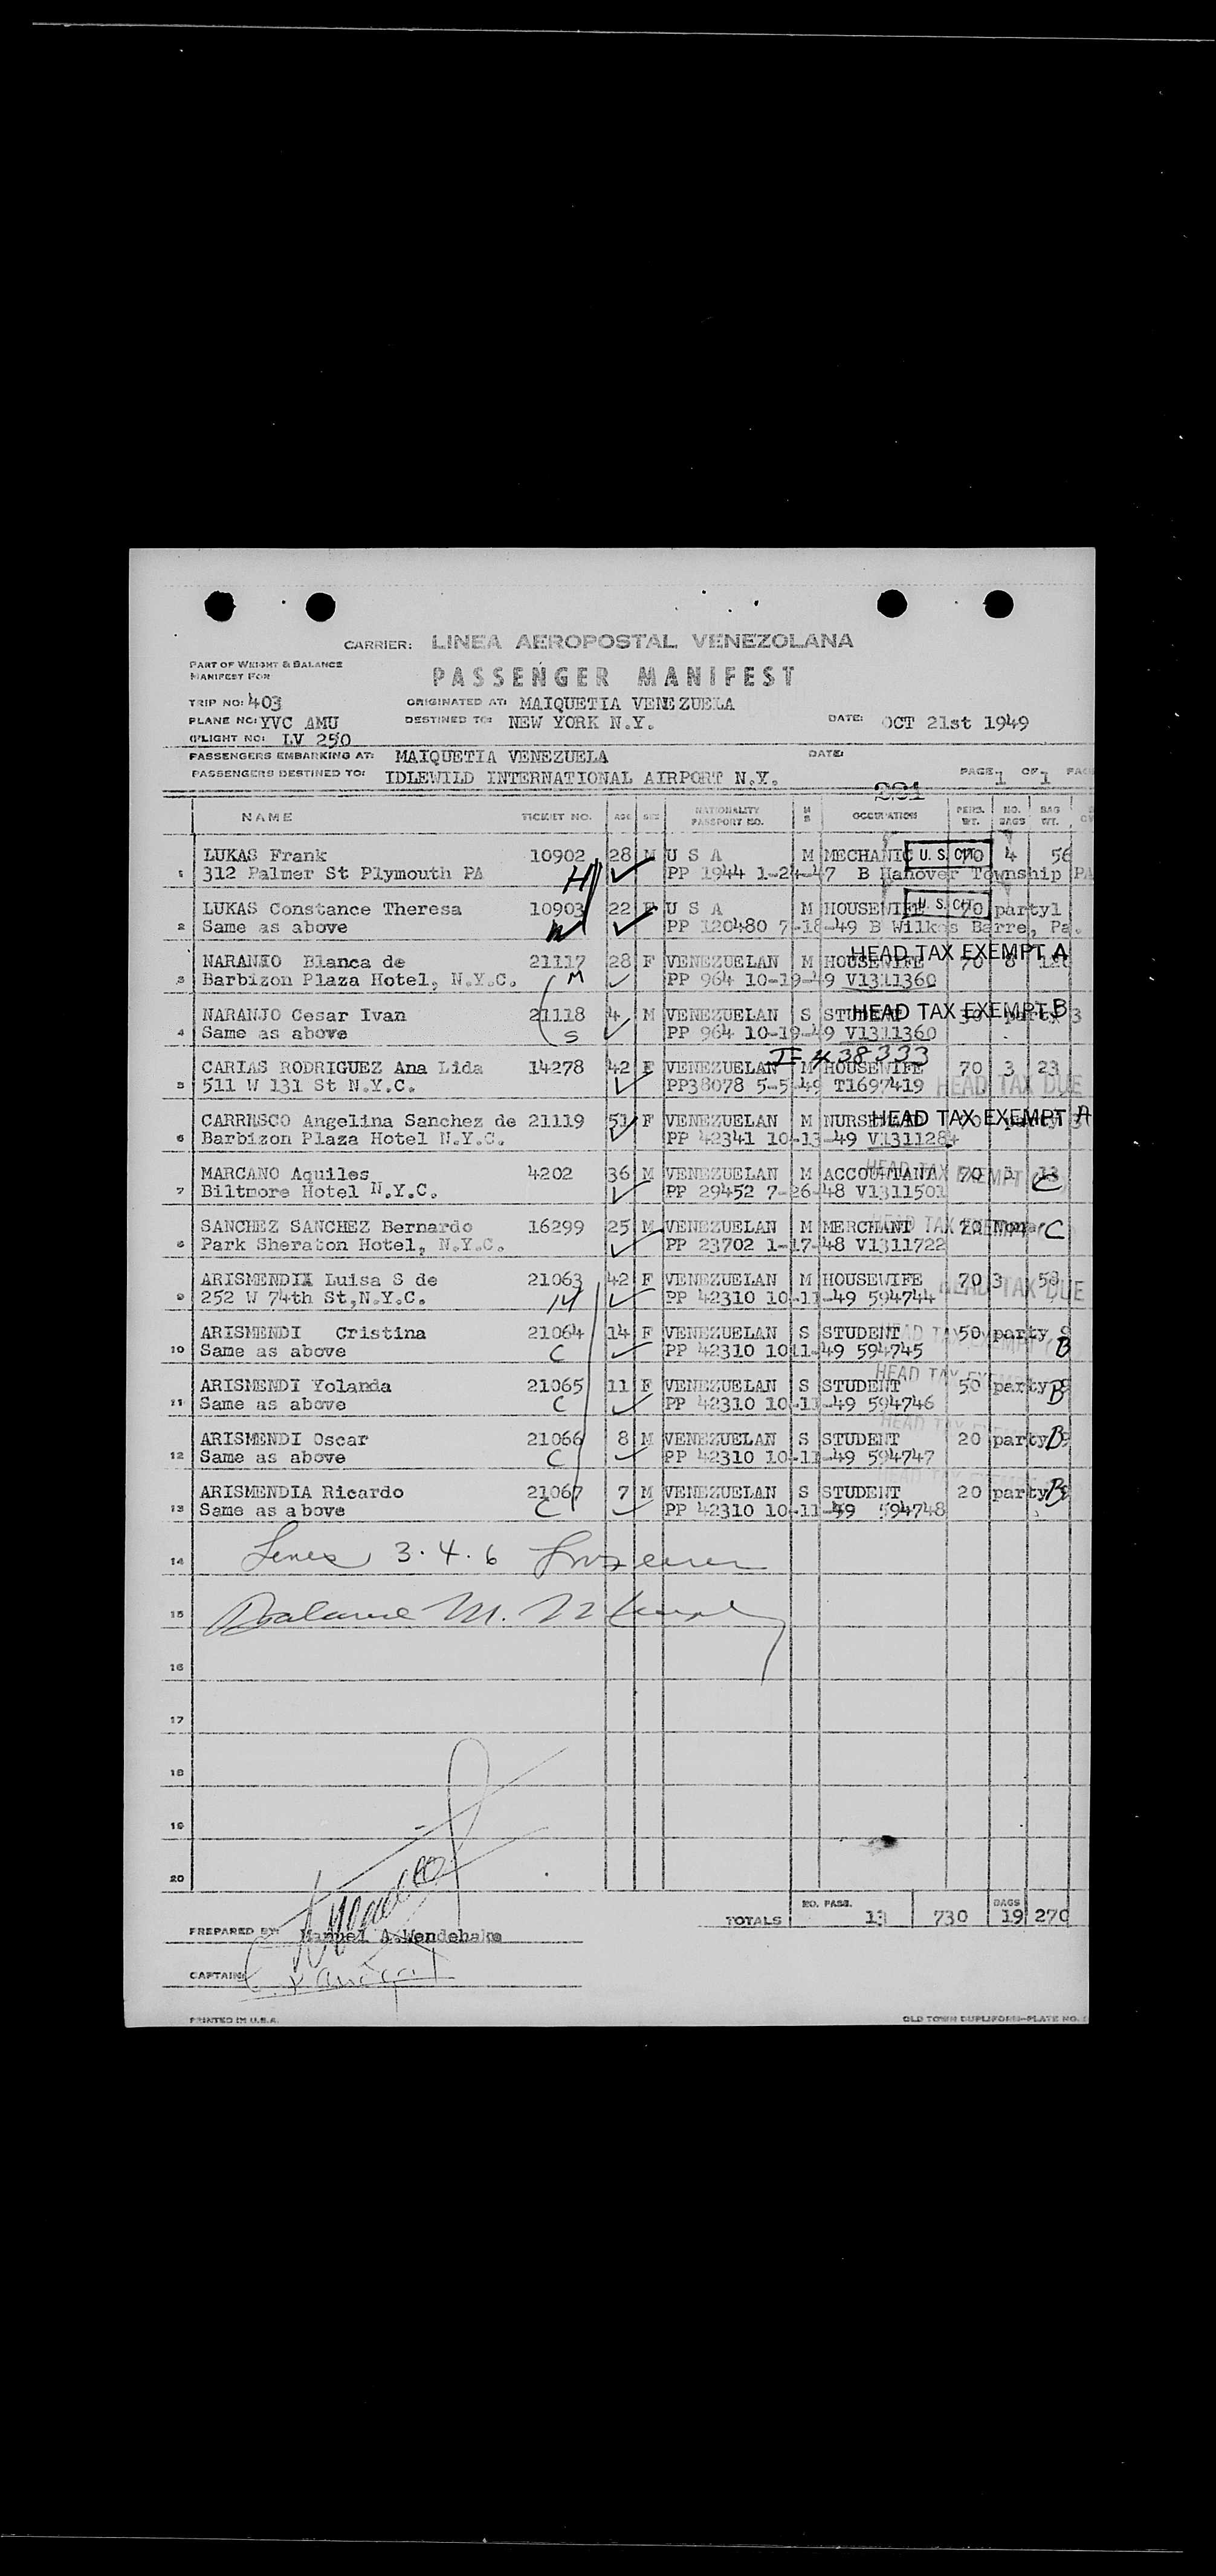 CARRIER: LINEA AEROPOSTAL VENEZOLANA
PART OF WEIGHT & BALANCE
MANIFEST FOR
PASSENGER MANIFEST
TRIP NO: 403 ORIGINATED AT: MAIQUETIA VENEZUELA
PLANE NO: YVC AMU DESTINED TO: NEW YORK N.Y. DATE: OCT 21st 1949
FLIGHT NO: LV 250
PASSENGERS EMBARKING AT: MAIQUETIA VENEZUELA DATE:
PASSENGERS DESTINED TO: IDLEWILD INTERNATIONAL AIRPORT N.Y. PAGE 1 OF 1
NAME TICKET NO. AGE SEX NATIONALITY PASSPORT NO. M S OCCUPATION PERS. WT. NO. BAGS BAG WT.
LUKAS Frank 10902 28 M U S A M MECHANIC U. S. CIT. 70 4 56
1 312 Palmer St Plymouth PA H PP 1944 1-24-47 B Hanover Township PA
LUKAS Constance Theresa 10903 22 F U S A M HOUSEWIFE U. S. CIT. 70 party1
2 Same as above W PP 120480 7-18-49 B Wilkes Barre, Pa.
NARANJO Blanca de 21117 28 F VENEZUELAN M HOUSEWIFE 70 8 HEAD TAX EXEMPT A
3 Barbizon Plaza Hotel, N.Y.C. M PP 964 10-19-49 V1311360
NARANJO Cesar Ivan 21118 4 M VENEZUELAN S STUDENT 30 party 3 HEAD TAX EXEMPT B
4 Same as above S PP 964 10-19-49 V1311360
I-438333
CARIAS RODRIGUEZ Ana Lida 14278 42 F VENEZUELAN M HOUSEWIFE 70 3 23
5 511 W 131 St N.Y.C. PP38078 5-5-49 T1697419 HEAD TAX DUE
CARRASCO Angelina Sanchez de 21119 51 F VENEZUELAN M NURSE HEAD TAX EXEMPT A
6 Barbizon Plaza Hotel N.Y.C. PP 42341 10-13-49 V1311284
MARCANO Aquiles 4202 36 M VENEZUELAN M ACCOUNTANT 70 3 13 HEAD TAX EXEMPT C
7 Biltmore Hotel N.Y.C. PP 29452 7-26-48 V1311501
SANCHEZ SANCHEZ Bernardo 16299 25 M VENEZUELAN M MERCHANT 70 None HEAD TAX EXEMPT C
8 Park Sheraton Hotel, N.Y.C. PP 23702 1-17-48 V1311722
ARISMENDI Luisa S de 21063 42 F VENEZUELAN M HOUSEWIFE 70 3 58
9 252 W 74th St,N.Y.C. M PP 42310 10-11-49 594744 HEAD TAX DUE
ARISMENDI Cristina 21064 14 F VENEZUELAN S STUDENT 50 party 9 HEAD TAX EXEMPT
10 Same as above C PP 42310 1011-49 594745 B
ARISMENDI Yolanda 21065 11 F VENEZUELAN S STUDENT 50 party 9 HEAD TAX EXEMPT
11 Same as above C PP 42310 10-11-49 594746 B
ARISMENDI Oscar 21066 8 M VENEZUELAN S STUDENT 20 party 9 B HEAD TAX EXEMPT
12 Same as above C PP 42310 10-11-49 594747
ARISMENDIA Ricardo 21067 7 M VENEZUELAN S STUDENT 20 party 9 B HEAD TAX EXEMPT
13 Same as above C PP 42310 10-11-49 594748
14 Lines 3.4.6
15 Balance M.
16
17
18
19
20
TOTALS NO. PASS. 13 730 BAGS 19 270
PREPARED BY: Manuel A.Wendehake
CAPTAIN:
PRINTED IN U.S.A. OLD TOWN DUPLIFORM—PLATE NO.